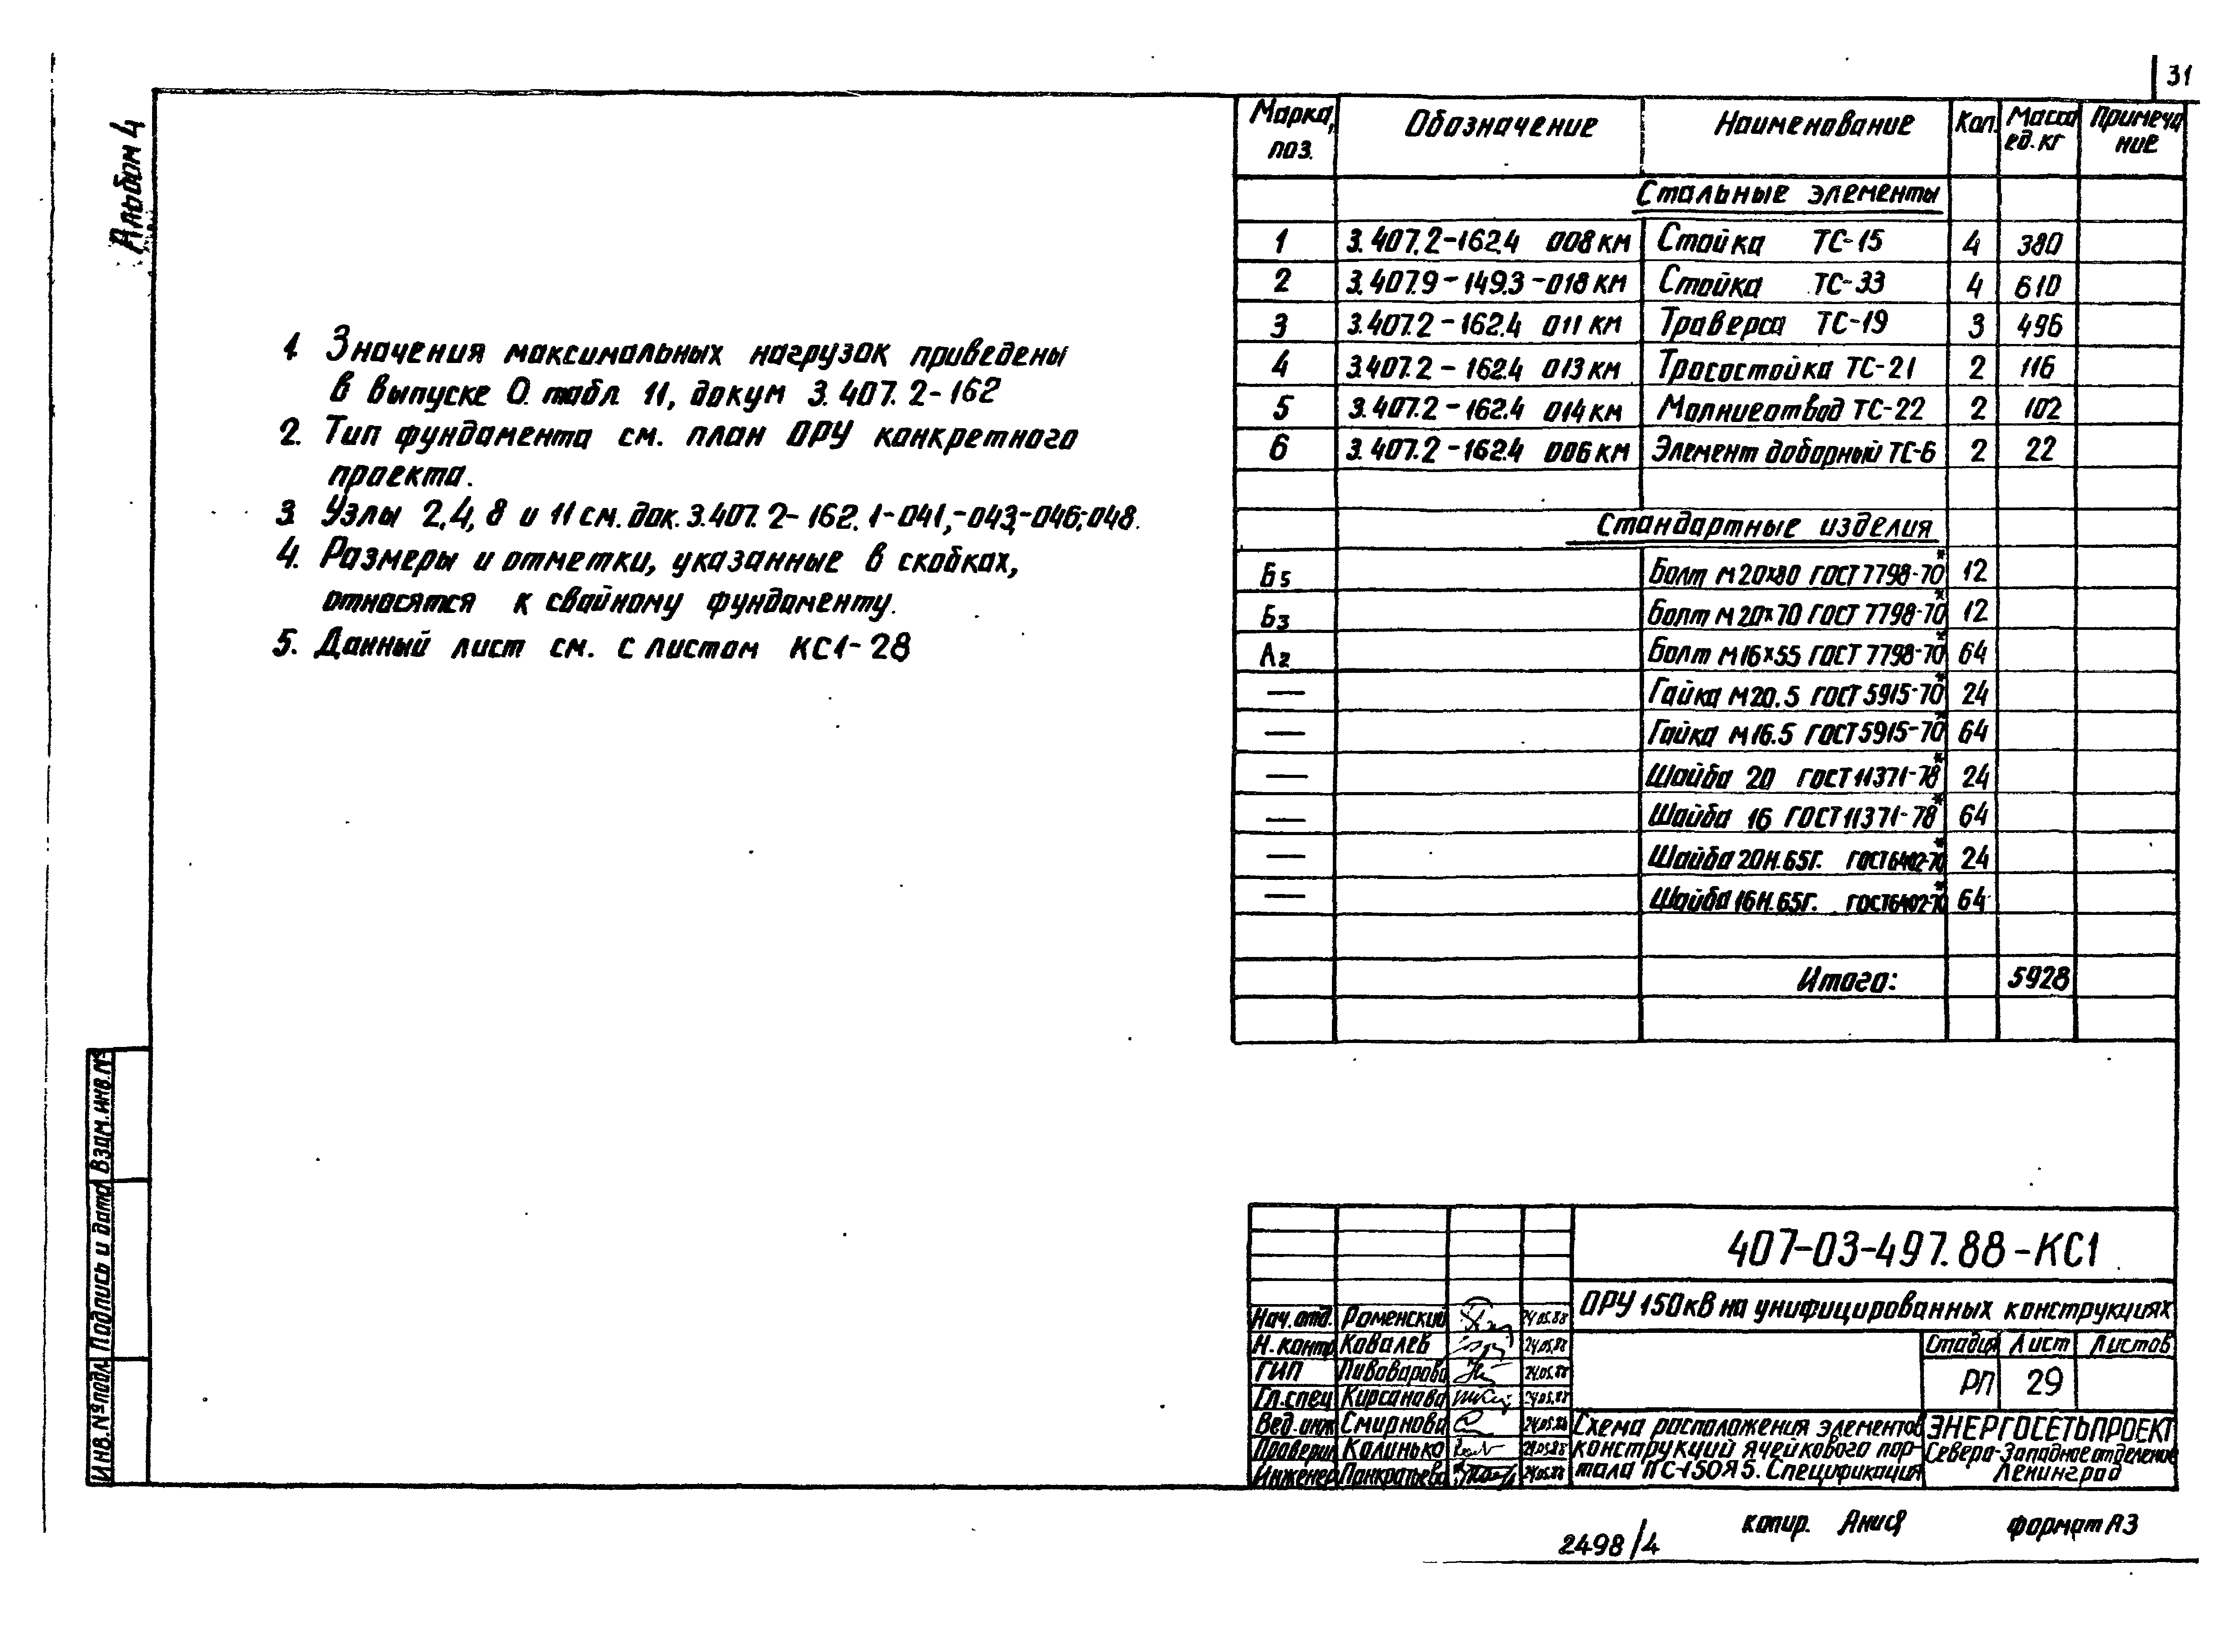 31
Альбом 4
Марка, поз. Обозначение Наименование Кол. Масса ед. кг Примечание
Стальные элементы
1 3.407.2-162.4 008КМ Стойка ТС-15 4 380
2 3.407.9-149.3-018КМ Стойка ТС-33 4 610
3 3.407.2-162.4 011КМ Траверса ТС-19 3 496
4 3.407.2-162.4 013КМ Тросостойка ТС-21 2 116
5 3.407.2-162.4 014КМ Молниеотвод ТС-22 2 102
6 3.407.2-162.4 006КМ Элемент доборный ТС-6 2 22
Стандартные изделия
Б5 Болт М20х80 ГОСТ 7798-70* 12
Б3 Болт М20х70 ГОСТ 7798-70* 12
А2 Болт М16х55 ГОСТ 7798-70* 64
— Гайка М20.5 ГОСТ 5915-70* 24
— Гайка М16.5 ГОСТ 5915-70* 64
— Шайба 20 ГОСТ 11371-78* 24
— Шайба 16 ГОСТ 11371-78* 64
— Шайба 20Н.65Г. ГОСТ 6402-70* 24
— Шайба 16Н.65Г. ГОСТ 6402-70* 64
Итого: 5928
1. Значения максимальных нагрузок приведены
в выпуске 0. табл. 11, докум 3.407.2-162
2. Тип фундамента см. план ОРУ конкретного
проекта.
3. Узлы 2,4,8 и 11 см. док. 3.407.2-162.1-041,-043,-046;048.
4. Размеры и отметки, указанные в скобках,
относятся к свайному фундаменту.
5. Данный лист см. с листом КС1-28
Инв.№подл. Подпись и дата Взам.инв.№
407-03-497.88-КС1
ОРУ 150кВ на унифицированных конструкциях
Нач.отд. Роменский 24.05.88
Н.контр. Ковалев 24.05.88
ГИП Пивоварова 24.05.88
Гл.спец Кирсанова 24.05.88
Вед.инж Смирнова 24.05.88
Проверил Калинько 24.05.88
Инженер Панкратьева 24.05.88
Стадия Лист Листов
РП 29
Схема расположения элементов
конструкций ячейкового пор-
тала ПС-150Я5. Спецификация
ЭНЕРГОСЕТЬПРОЕКТ
Северо-Западное отделение
Ленинград
копир. Анися формат А3
2498/4